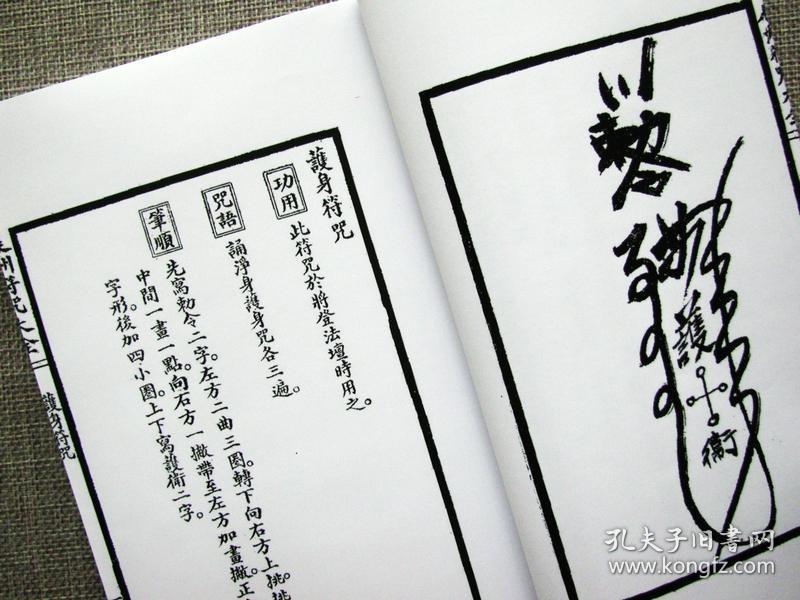 護身符咒
功用
此符咒於將登法壇時用之。
咒語
誦淨身護身咒各三遍。
筆順
先寫勅令二字。左方二曲三圈。轉下向右方上挑。挑
中間一畫一點。向右方一撇帶至左方加畫撇正
字形。後加四小圈。上下寫護衛二字。
符咒大全
護身符咒
護
衛
孔夫子旧書网
www.kongfz.com